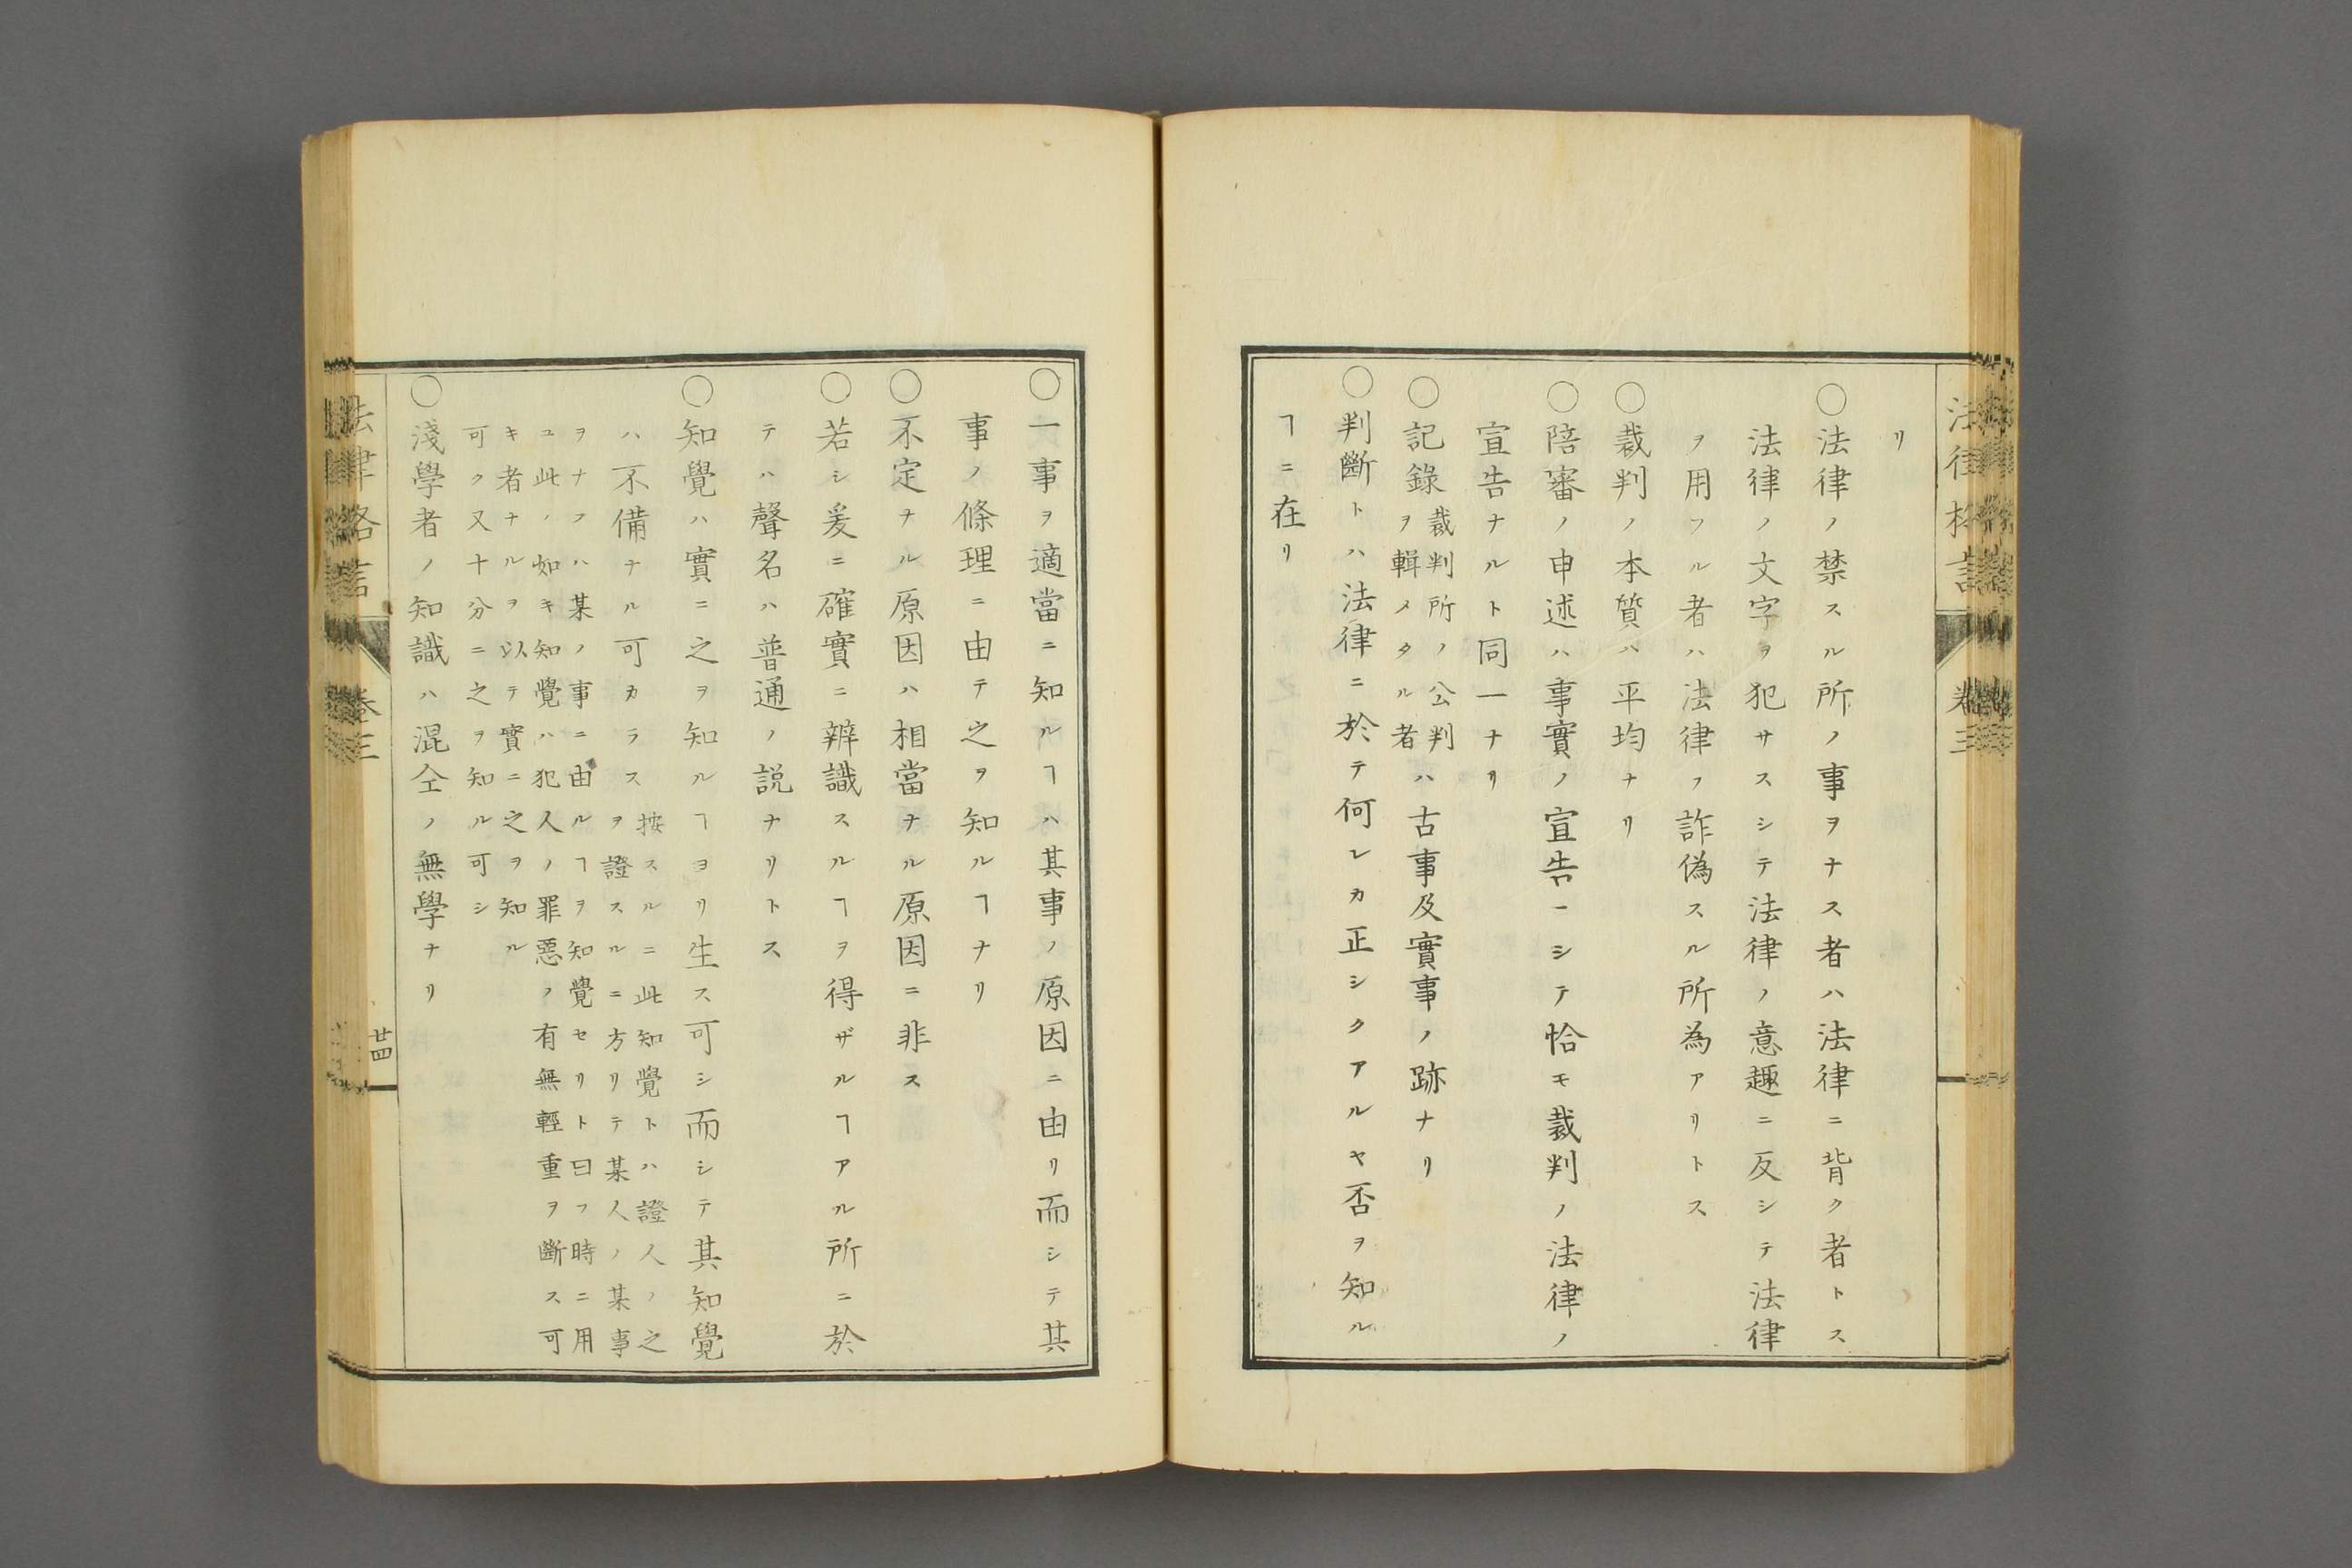 リ
○法律ノ禁スル所ノ事ヲナス者ハ法律ニ背ク者トス
法律ノ文字ヲ犯サスシテ法律ノ意趣ニ反シテ法律
ヲ用フル者ハ法律ヲ詐偽スル所為アリトス
○裁判ノ本質ハ平均ナリ
○陪審ノ申述ハ事實ノ宣告ニシテ恰モ裁判ノ法律ノ
宣告ナルト同一ナリ
○記錄裁判所ノ公判ヲ輯メタル者ハ古事及實事ノ跡ナリ
○判斷トハ法律ニ於テ何レカ正シクアルヤ否ヲ知ル
ヿニ在リ
○一事ヲ適當ニ知ルヿハ其事ノ原因ニ由リ而シテ其
事ノ條理ニ由テ之ヲ知ルヿナリ
○不定ナル原因ハ相當ナル原因ニ非ス
○若シ爰ニ確實ニ辨識スルヿヲ得ザルヿアル所ニ於
テハ聲名ハ普通ノ説ナリトス
○知覺ハ實ニ之ヲ知ルヿヨリ生ス可シ而シテ其知覺
ハ不備ナル可カラス
按スルニ此知覺トハ證人ノ之
ヲ證スルニ方リテ某人ノ某事
ヲナフハ某ノ事ニ由ルヿヲ知覺セリト曰フ時ニ用
ユ此ノ如キ知覺ハ犯人ノ罪惡ノ有無輕重ヲ斷ス可
キ者ナルヲ以テ實ニ之ヲ知ル
可ク又十分ニ之ヲ知ル可シ
○淺學者ノ知識ハ混仝ノ無學ナリ
法律格言
卷三
廿四
法律格言
卷三